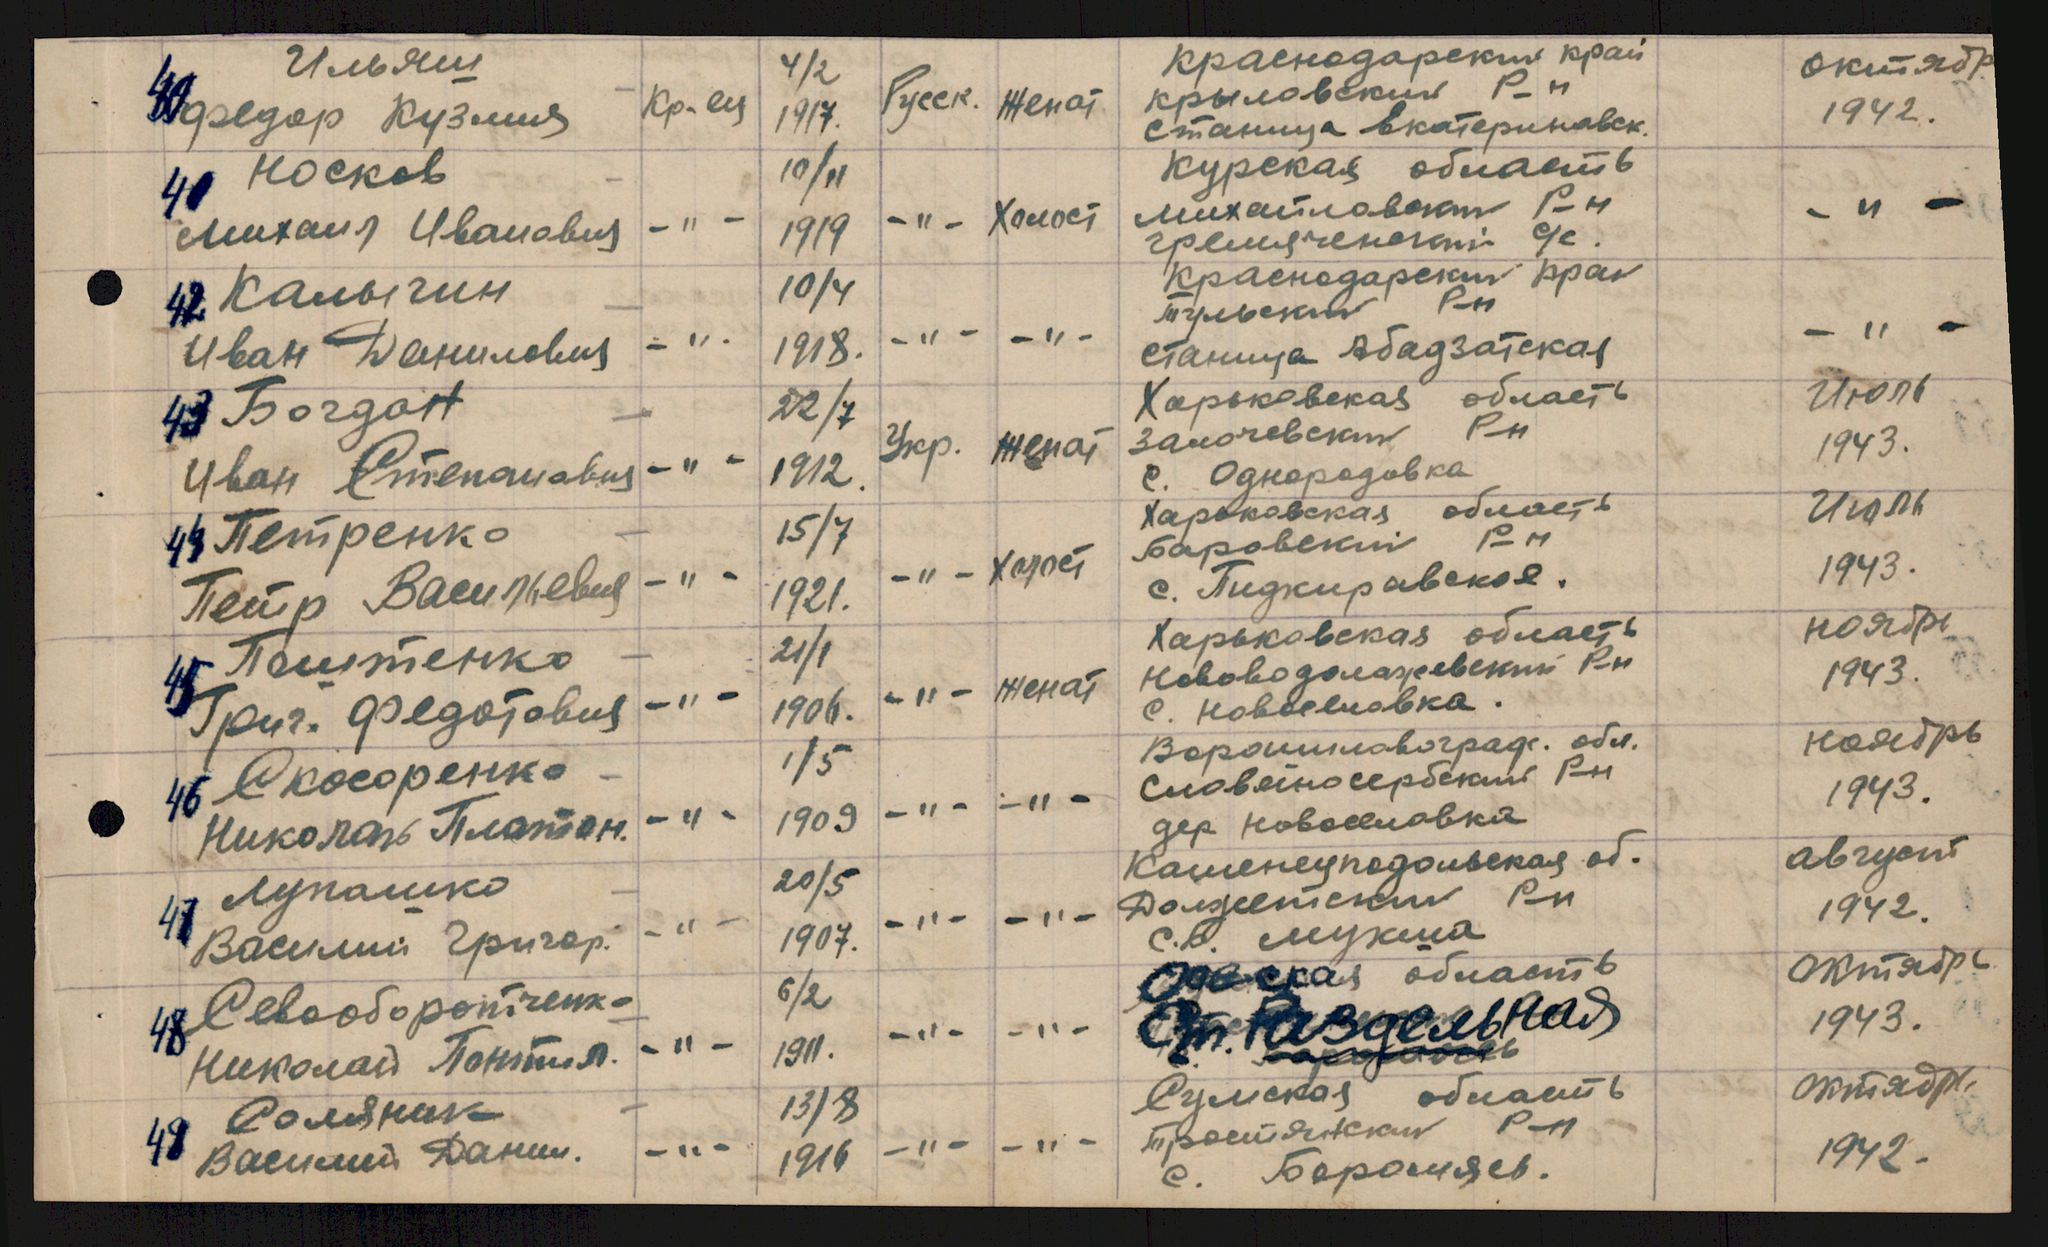 40 Ильяш - Кр-ец 4/2 1917. Русск. Женат Краснодарский край октябр 1942.
Федор Кузмич Крыловский Р-н
станица Екатериновск.
41 Носков - -"- 10/11 1919 -"- Холост Курская область -"-
Михаил Иванович Михайловский Р-н
Гремяченский с/с.
42. Калыгин - -"- 10/4 1918. -"- -"- Краснодарский край -"-
Иван Данилович Тульский Р-н
станица Абадзатская
43 Богдан - -"- 22/7 1912. Укр. Женат Харьковская область Июль 1943.
Иван Степанович Залочевский Р-н
с. Однородовка
44 Петренко - -"- 15/7 1921. -"- Холост Харьковская область Июль 1943.
Петр Васильевич Баровский Р-н
с. Пидкиравское.
45 Пештенко - -"- 21/1 1906. -"- Женат Харьковская область ноябрь 1943.
Григ. Федотович Нововодолажевский Р-н
с. Новоселовка.
46 Скосоренко - -"- 1/5 1909 -"- -"- Ворошиловоград. обл. ноябрь 1943.
Николай Платон. Словейносербский Р-н
дер Новоселовка
47 Лупашко - -"- 20/5 1907. -"- -"- Каменецподольская об. август 1942.
Василий Григор. Р-н
48 Севооборотченко - -"- 6/2 1911. -"- -"- Одеская область октябрь 1943.
Николай Пантил. Ст. Раздельная
49 Соляник - -"- 13/8 1916 -"- -"- Сумская область октябрь 1942.
Василий Данил. Тростянский Р-н
с. Боромяев.